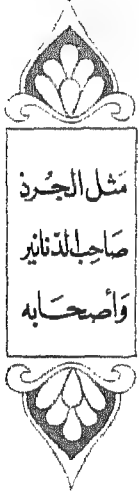 مَثل الجُرذ
صَاحِب الدّنانير
وَأصحَابه